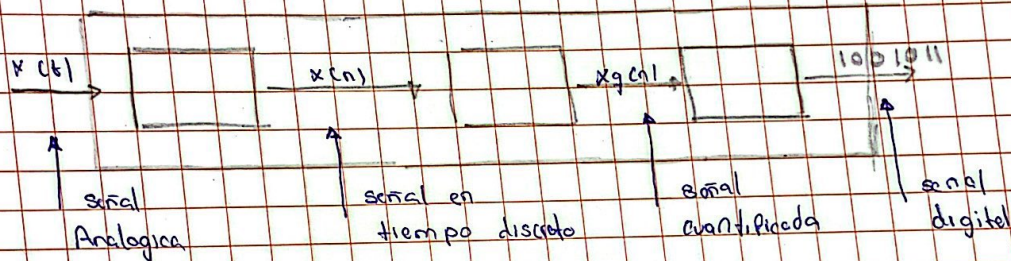 x(t)
x(n)
xq(n)
1001011
señal
Analogica
señal en
tiempo discreto
señal
cuantificada
señal
digital